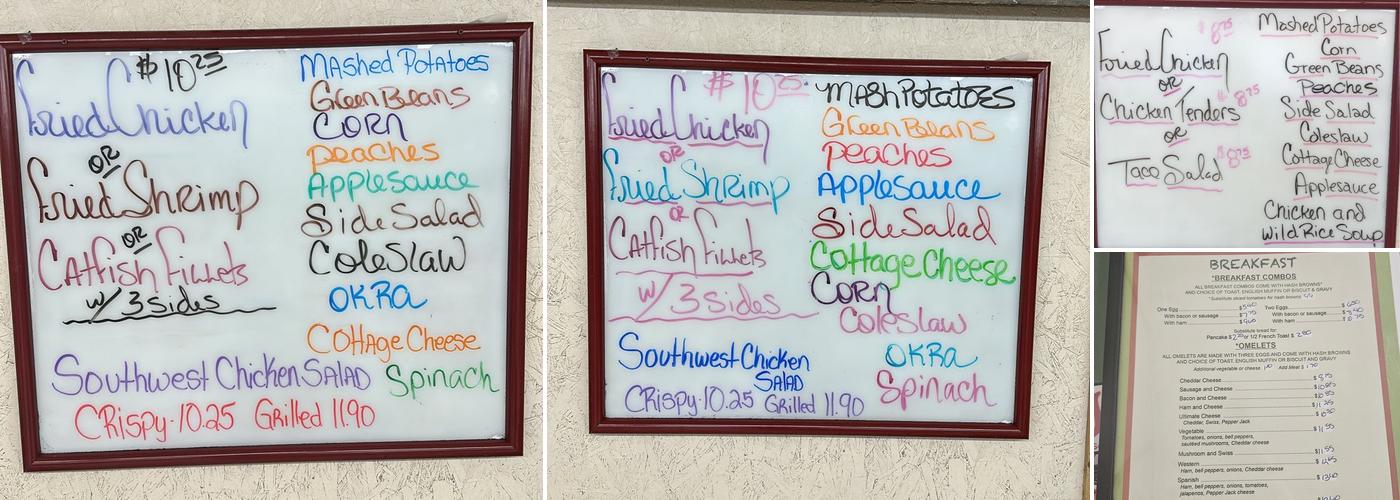 $10.25
Fried Chicken
OR
Fried Shrimp
OR
Catfish Fillets
w/ 3 sides
Mashed Potatoes
Green Beans
Corn
Peaches
Applesauce
Side Salad
Coleslaw
OKRA
Cottage Cheese
Southwest Chicken Salad
Spinach
Crispy-10.25 Grilled 11.90
$10.25
Fried Chicken
OR
Fried Shrimp
OR
Catfish Fillets
w/ 3 sides
Mash Potatoes
Green Beans
Peaches
Applesauce
Side Salad
Cottage Cheese
Corn
Coleslaw
OKRA
Spinach
Southwest Chicken
Salad
Crispy-10.25 Grilled 11.90
$8.75
Fried Chicken
OR
Chicken Tenders $8.75
OR
Taco Salad $8.75
Mashed Potatoes
Corn
Green Beans
Peaches
Side Salad
Coleslaw
Cottage Cheese
Applesauce
Chicken and
Wild Rice Soup
BREAKFAST
*BREAKFAST COMBOS
ALL BREAKFAST COMBOS COME WITH HASH BROWNS*
AND CHOICE OF TOAST, ENGLISH MUFFIN OR BISCUIT & GRAVY
*Substitute sliced tomatoes for hash browns
One Egg
With bacon or sausage
With ham
Two Eggs
With bacon or sausage
With ham
Substitute bread for:
Pancake or 1/2 French Toast
*OMELETS
ALL OMELETS ARE MADE WITH THREE EGGS AND COME WITH HASH BROWNS
AND CHOICE OF TOAST, ENGLISH MUFFIN OR BISCUIT AND GRAVY
Additional vegetable or cheese Add Meat
Cheddar Cheese
Sausage and Cheese
Bacon and Cheese
Ham and Cheese
Ultimate Cheese
Cheddar, Swiss, Pepper Jack
Vegetable $11.55
Tomatoes, onions, bell peppers,
sautéed mushrooms, Cheddar cheese
Mushroom and Swiss $11.55
Western
Ham, bell peppers, onions, Cheddar cheese
Spanish
Ham, bell peppers, onions, tomatoes,
jalapenos, Pepper Jack cheese